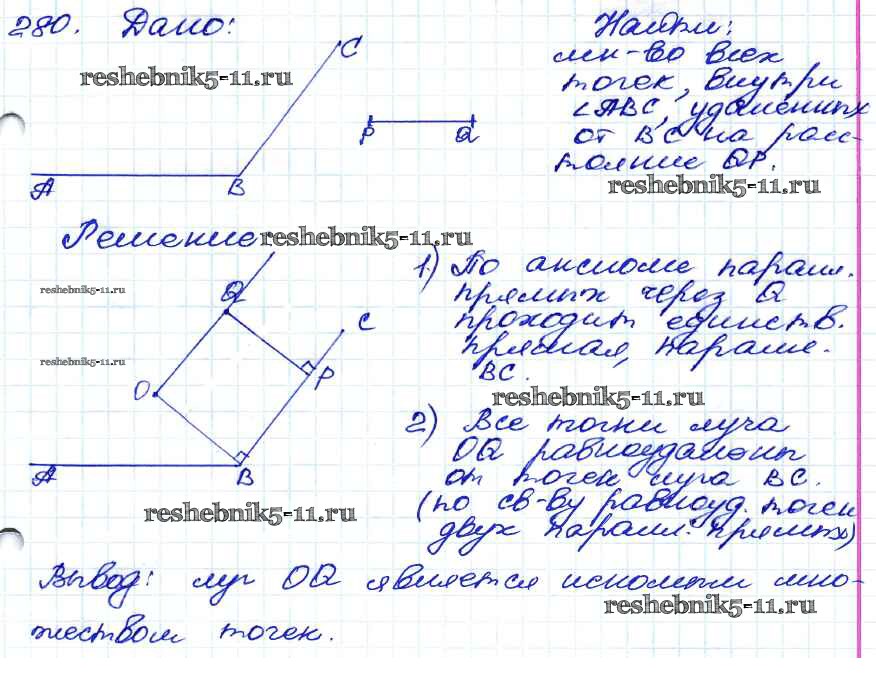 280. Дано:
C
reshebnik5-11.ru
P Q
A B
Найти:
мн-во всех
точек, внутри
∠ABC, удаленных
от BC на расс-
тояние QP.
reshebnik5-11.ru
Решение reshebnik5-11.ru
reshebnik5-11.ru
Q
C
reshebnik5-11.ru
P
O
A B
reshebnik5-11.ru
1) По аксиоме паралл.
прямых через Q
проходит единств.
прямая, паралле.
BC.
reshebnik5-11.ru
2) Все точки луча
OQ равноудалены
от точек луча BC.
(по св-ву равноуд. точек
двух паралл. прямых)
Вывод: луч OQ является искомым мно-
reshebnik5-11.ru
жеством точек.